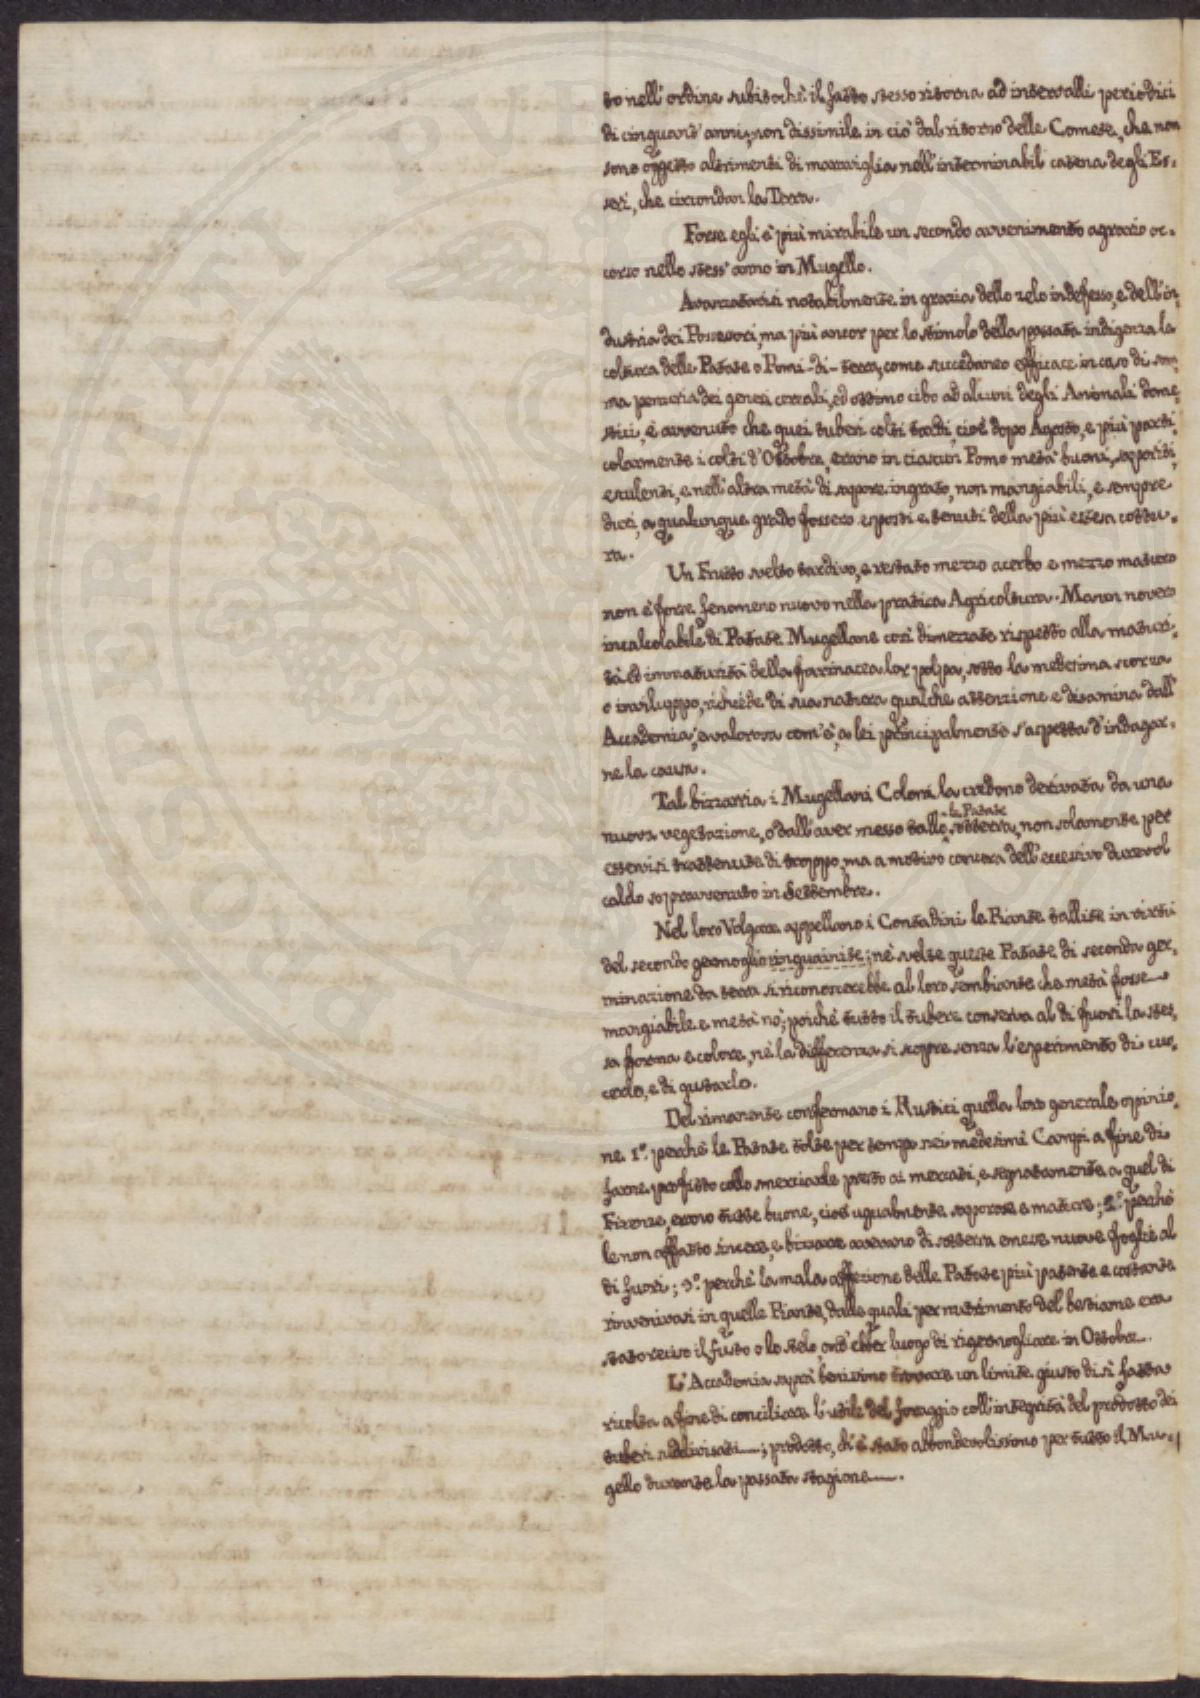 to nell'ordine subitochè il fatto stesso ritorna ad intervalli periodici
di cinquant'anni; non dissimile in ciò dal ritorno delle Comete, che non
sono oggetto altrimenti di maraviglia nell'interminabil catena degli Es-
seri, che circondan la Terra.
Forse egli è più mirabile un secondo avvenimento agrario oc-
corso nello stess'anno in Mugello.
Avanzatasi notabilmente in grazia dello zelo indefesso, e dell'in-
dustria dei Possessori, ma più ancor per lo stimolo della passata indigenza la
coltura delle Patate o Pomi-di-terra, come succedaneo efficace in caso di som-
ma penuria dei generi cereali, ed ottimo cibo ad alcuni degli Animali dome-
stici, è avvenuto che quei tuberi colti tardi, cioè dopo Agosto, e più parti-
colarmente i colti d'Ottobre, erano in ciascun Pomo metà buoni, saporiti,
esculenti, e nell'altra metà di sapore ingrato, non mangiabili, e sempre
duri, a qualunque grado fossero esposti e tenuti della più estesa cottu-
ra.
Un Frutto svelto tardivo, e restato mezzo acerbo e mezzo maturo
non è forse fenomeno nuovo nella pratica Agricoltura. Ma un novero
incalcolabile di Patate Mugellane così dimezzate rispetto alla maturi-
tà ed immaturità della farinacea lor polpa, sotto la medesima scorza
o inviluppo, richiede di sua natura qualche attenzione e disamina dall'
Accademia; e valorosa com'è, a lei principalmente s'aspetta d'indagar-
ne la causa.
Tal bizzarria i Mugellani Coloni la credono derivata da una
nuova vegetazione, o dall'aver messo tallo le Patate sotterra, non solamente per
esservisi trattenute di troppo, ma a motivo ancora dell'eccessivo durevol
caldo sopravvenuto in Settembre.
Nel loro Volgare appellano i Contadini le Piante tallite in virtù
del secondo germoglio ringuainite; nè svelte queste Patate di seconda ger-
minazione da terra si riconoscerebbe al loro sembiante che metà fosse
mangiabile e metà nò; poichè tutto il tubere conserva al di fuori la stes-
sa forma e colore, nè la differenza si scopre senza l'esperimento di cuo-
cerlo, e di gustarlo.
Del rimanente confermano i Rustici quella loro generale opinio-
ne 1º. perchè le Patate tolte per tempo nei medesimi Campi a fine di
farne profitto collo smerciarle presto ai mercati, e segnatamente a quel di
Firenze, erano tutte buone, cioè ugualmente saporose e mature; 2º. perchè
le non affatto sincere, e bizzarre avevano di sotterra emesse nuove foglie al
di fuori; 3º. perchè la mala affezione delle Patate più patente e costante
rinvenivasi in quelle Piante, dalle quali per nutrimento del bestiame era
stato reciso il fusto o lo stelo, ond'ebber luogo di rigermogliare in Ottobre.
L'Accademia saprà benissimo trovare un limite giusto di sì fatta
ricolta a fine di conciliare l'utile del foraggio coll'integrità del prodotto dei
tuberi addivisati; prodotto, ch'è stato abbondevolissimo per tutto il Mu-
gello durante la passata stagione.